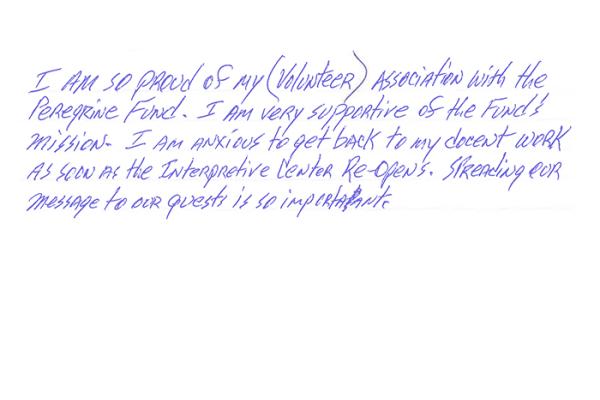 I am so proud of my (Volunteer) Association with the
Peregrine Fund. I am very supportive of the Fund's
mission. I am anxious to get back to my docent work
as soon as the Interpretive Center Re-opens. Spreading our
message to our guests is so important.